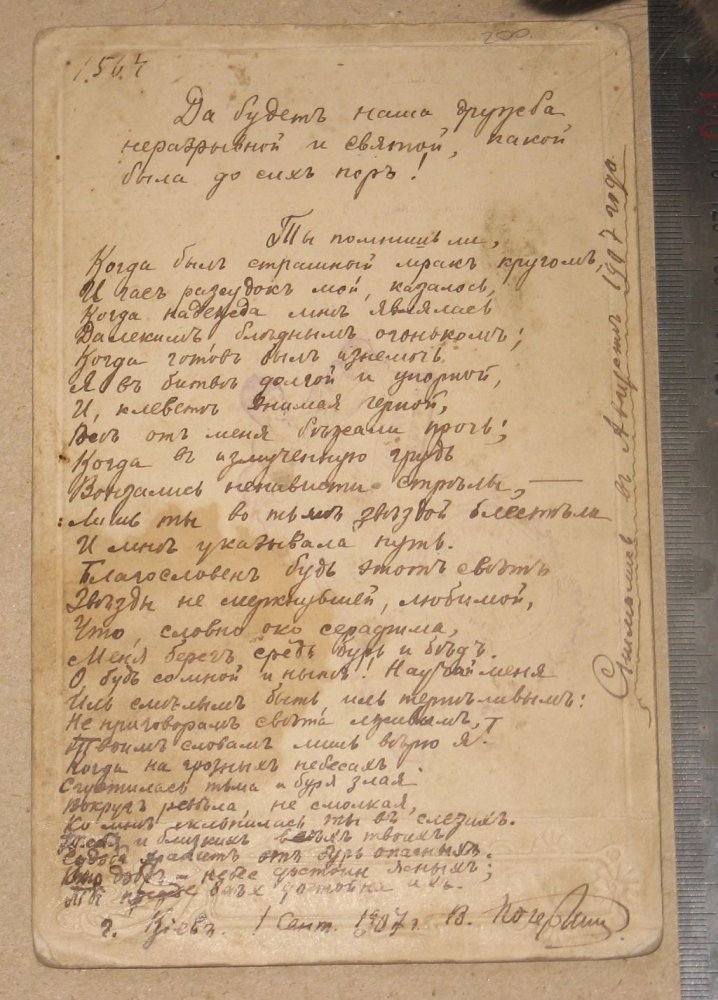 1564
200
Да будетъ наша дружба
неразрывной и святой, какой
была до сихъ поръ!
Ты помнишь ли,
Когда былъ страшный мракъ кругомъ,
И гасъ разсудокъ мой, казалось,
Когда надежда мнѣ являлась
Далекимъ блѣднымъ огонькомъ;
Когда готовъ былъ изнемочь
Я въ битвѣ долгой и упорной,
И, клеветѣ внимая черной,
Всѣ отъ меня бѣжали прочь;
Когда въ измученную грудь
Вонзались ненависти стрѣлы, —
Лишь ты во тьмѣ звѣздой блестѣла
И мнѣ указывала путь.
Благословенъ будь этотъ свѣтъ
Звѣзды не меркнувшей, любимой,
Что, словно око серафима,
Меня берегъ средь бурь и бѣдъ.
О будь со мной и нынѣ! Научай меня
Иль смѣлымъ быть иль терпѣливымъ:
Не приговорамъ свѣта лживымъ,
Твоимъ словамъ лишь вѣрю я!
Когда на грозныхъ небесахъ
Сгустилась тьма и буря злая
Вокругъ ревѣла, не смолкая,
Ко мнѣ склонилась ты въ слезахъ.
Тебя и близкихъ всѣхъ твоихъ
Судьба хранитъ отъ бурь опасныхъ.
Кто добръ – небесъ достоин ясныхъ;
Ты прежде всѣхъ достойна ихъ.
г. Кіевъ. 1 Сент. 1907 г. В.
Снимались въ Августѣ 1907 года